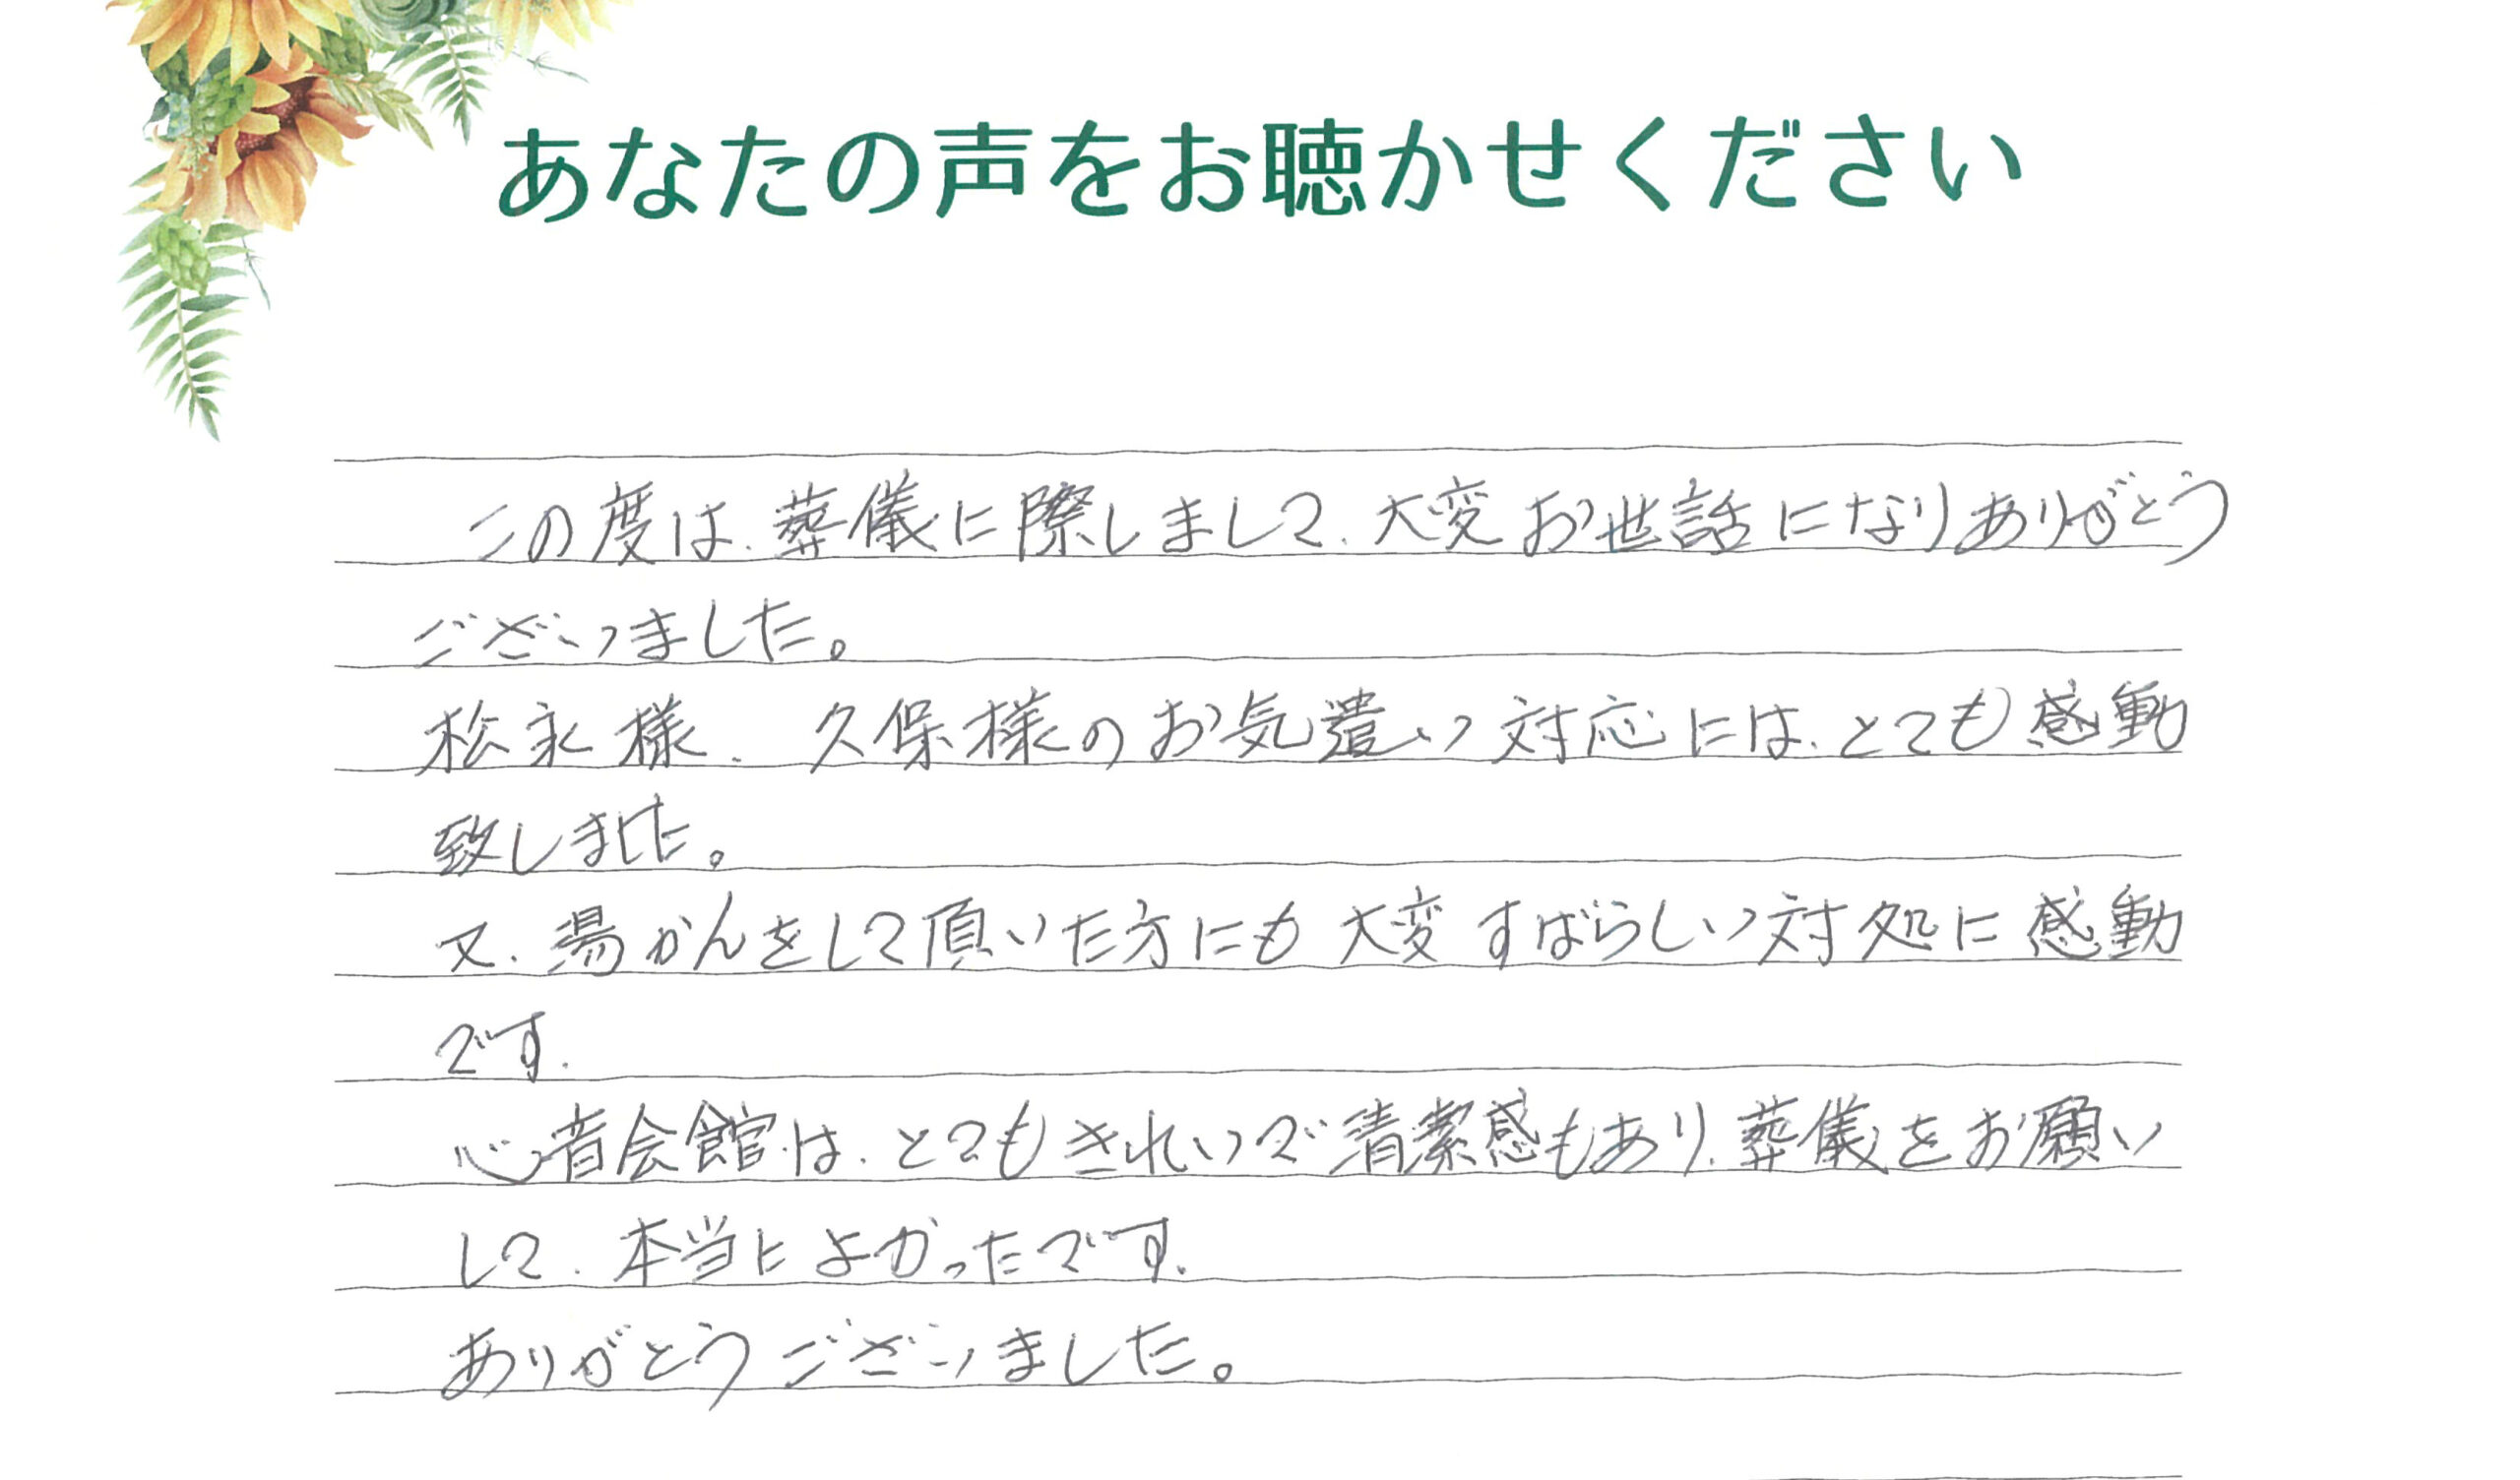 あなたの声をお聴かせください
この度は、葬儀に際しまして、大変お世話になりありがとう
ございました。
松永様、久保様のお気遣い対応には、とても感動
致しました。
又、湯かんをして頂いた方にも大変すばらしい対処に感動
です。
心音会館は、とてもきれいで清潔感もあり、葬儀をお願い
して、本当によかったです。
ありがとうございました。